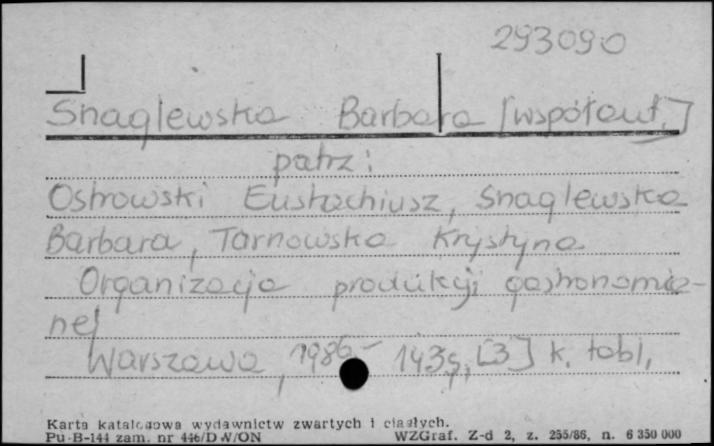 293090
Snaglewska Barbara [współaut.]
patrz:
Ostrowski Eustachiusz, Snaglewska
Barbara, Tarnowska Krystyna
Organizacja produkcji gastronomicz-
nej
Warszawa, 1986.- 143s, [3] k. tabl,
Karta katalogowa wydawnictw zwartych i ciągłych.
Pu-B-144 zam. nr 446/DW/ON WZGraf. Z-d 2, z. 255/86, n. 6 350 000